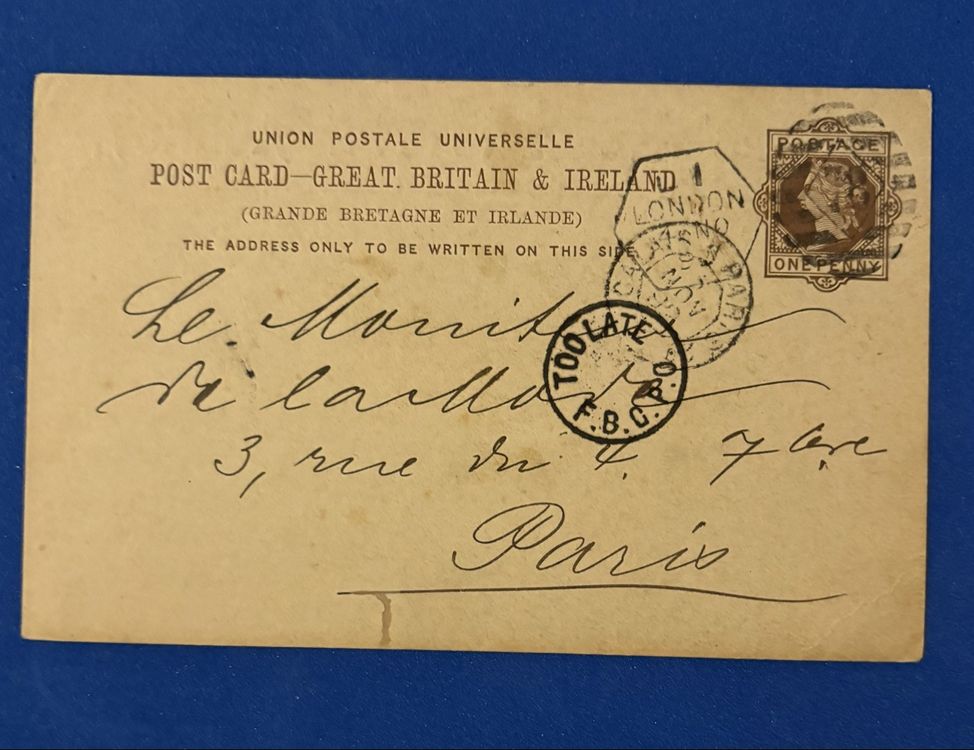 UNION POSTALE UNIVERSELLE
POST CARD—GREAT BRITAIN & IRELAND
(GRANDE BRETAGNE ET IRLANDE)
THE ADDRESS ONLY TO BE WRITTEN ON THIS SIDE
POSTAGE
ONE PENNY
LONDON
NO
CALAIS A PARIS
NOV
TOO LATE
F.B.C.P.O
Le Monite
de la Mode
3, rue du 4. 7bre
Paris